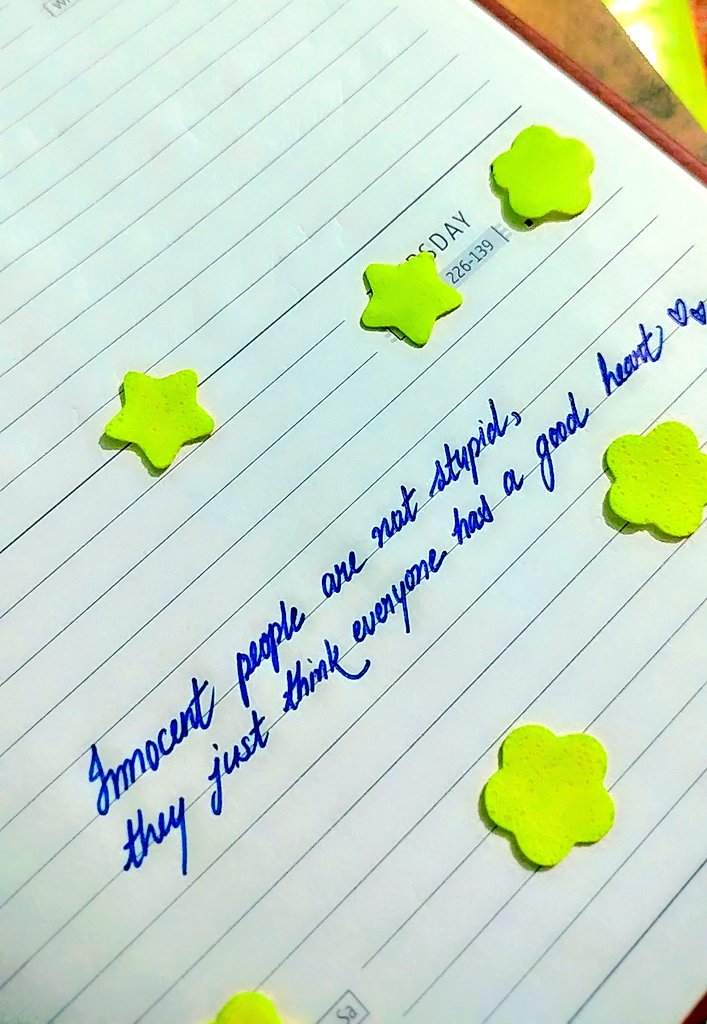 SDAY
226-139
Innocent people are not stupid,
they just think everyone has a good heart ♡♡
Sa